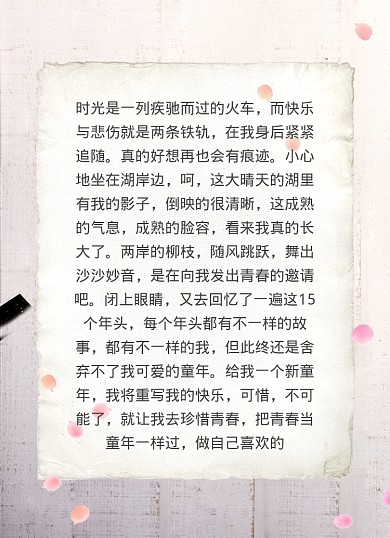 时光是一列疾驰而过的火车，而快乐
与悲伤就是两条铁轨，在我身后紧紧
追随。真的好想再也会有痕迹。小心
地坐在湖岸边，呵，这大晴天的湖里
有我的影子，倒映的很清晰，这成熟
的气息，成熟的脸容，看来我真的长
大了。两岸的柳枝，随风跳跃，舞出
沙沙妙音，是在向我发出青春的邀请
吧。闭上眼睛，又去回忆了一遍这15
个年头，每个年头都有不一样的故
事，都有不一样的我，但此终还是舍
弃不了我可爱的童年。给我一个新童
年，我将重写我的快乐，可惜，不可
能了，就让我去珍惜青春，把青春当
童年一样过，做自己喜欢的